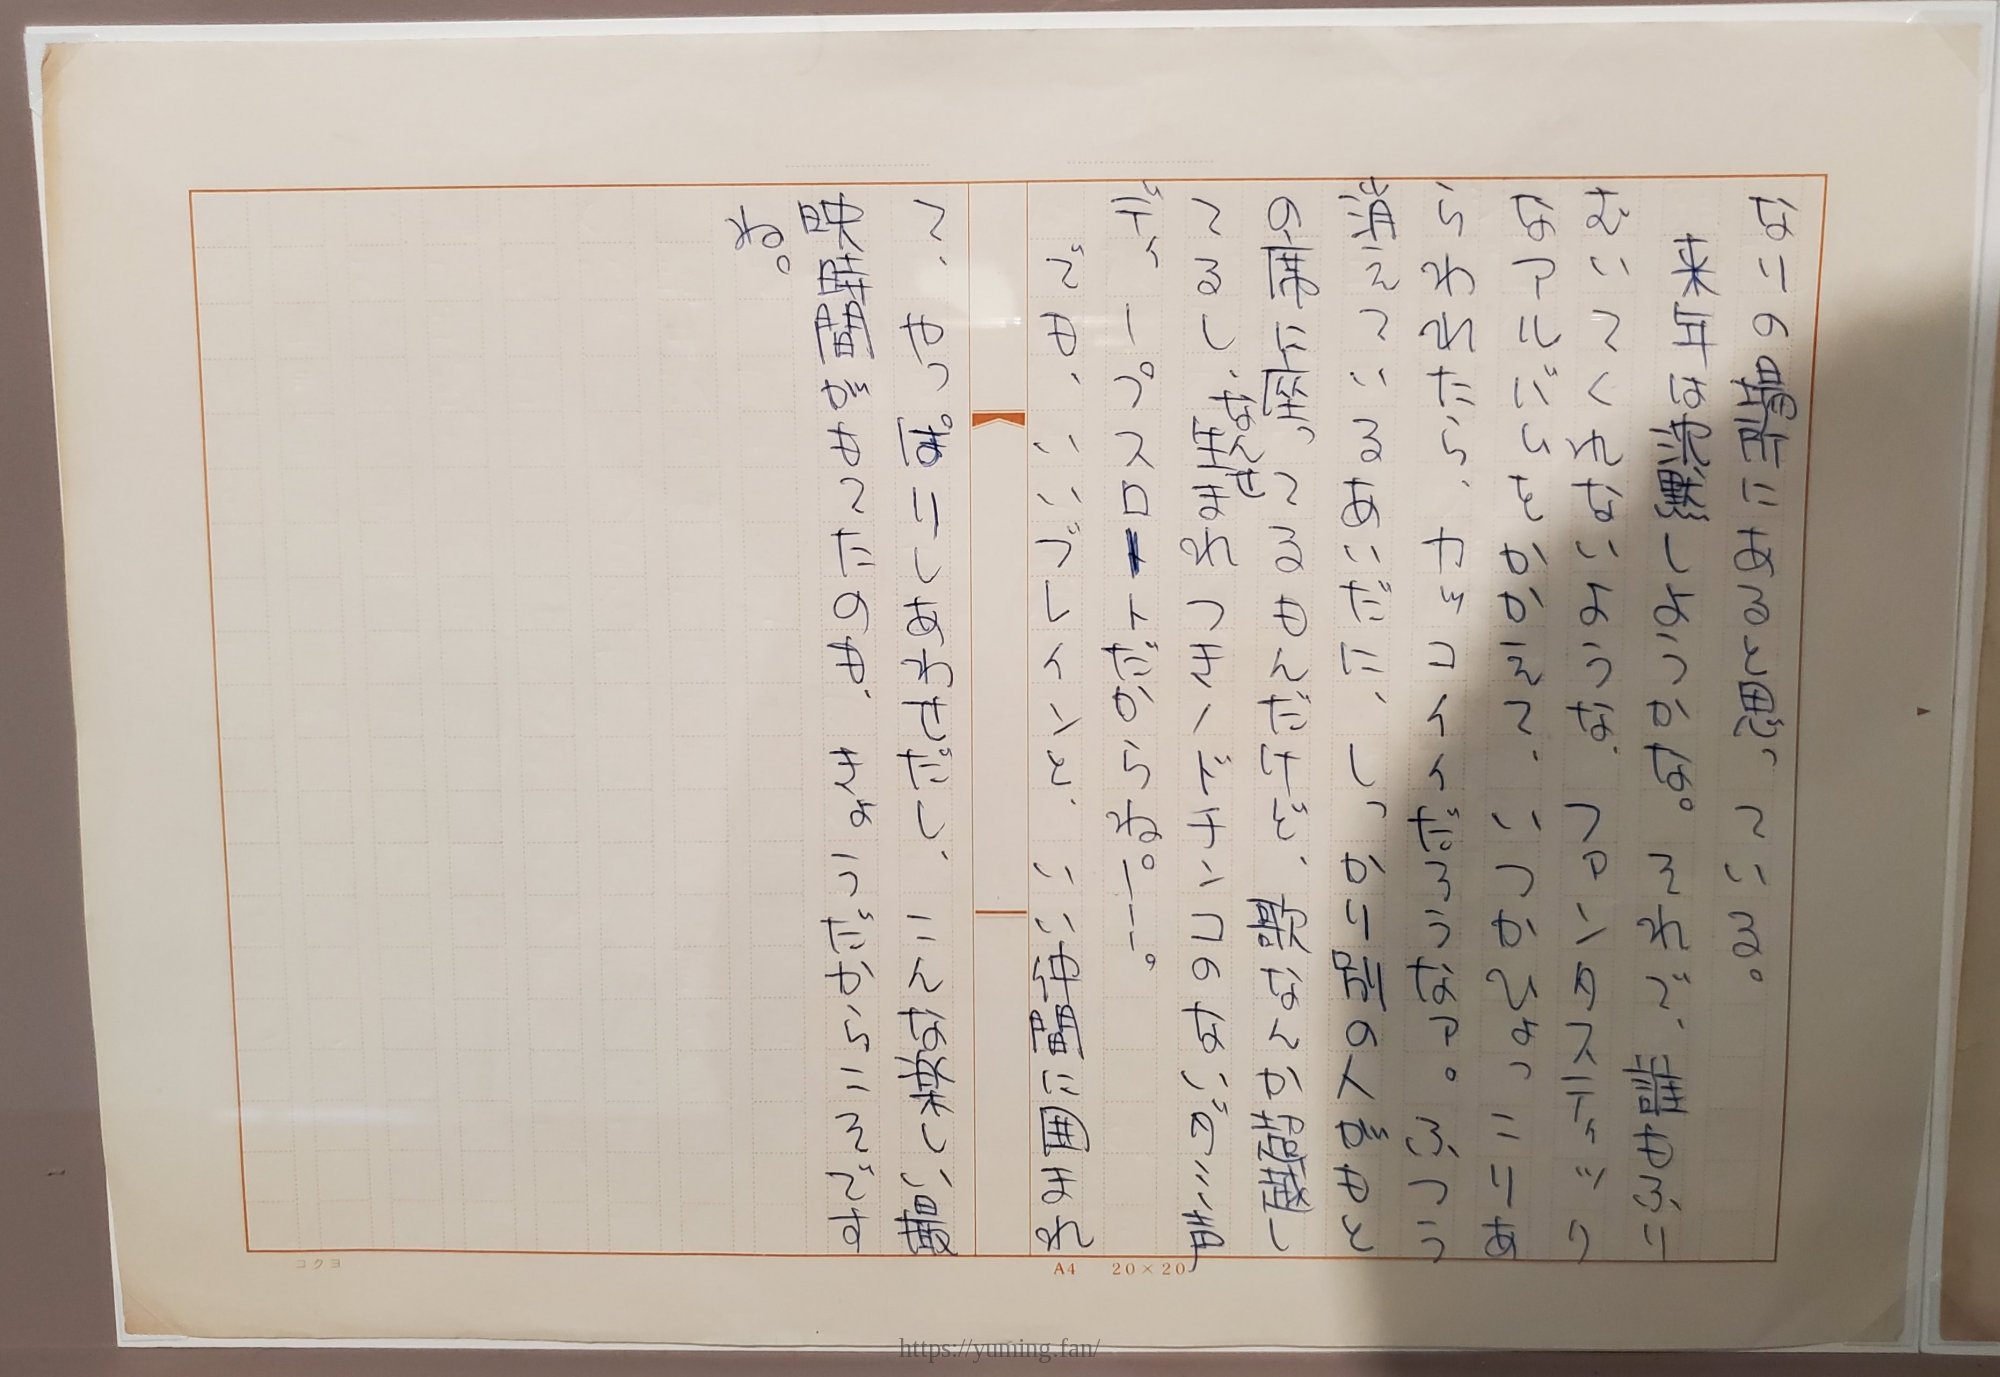 なりの場所にあると思っている。
来年は沈黙しようかな。それで、誰もふり
むいてくれないような、ファンタスティック
なアルバムをかかえて、いつかひょっこりあ
らわれたら、カッコイイだろうなァ。ふつう
消えているあいだに、しっかり別の人がもと
の席に座ってるもんだけど、なんか
てるし、なんせ生まれつきノドチンコの
ディープスロートだからね。
でも、いいブレインと、いい仲間に囲まれ
て、しあわせだし、
間がもてたのも、だからこそです
ね。
コクヨ
A4 20×20
https://yuming.fan/